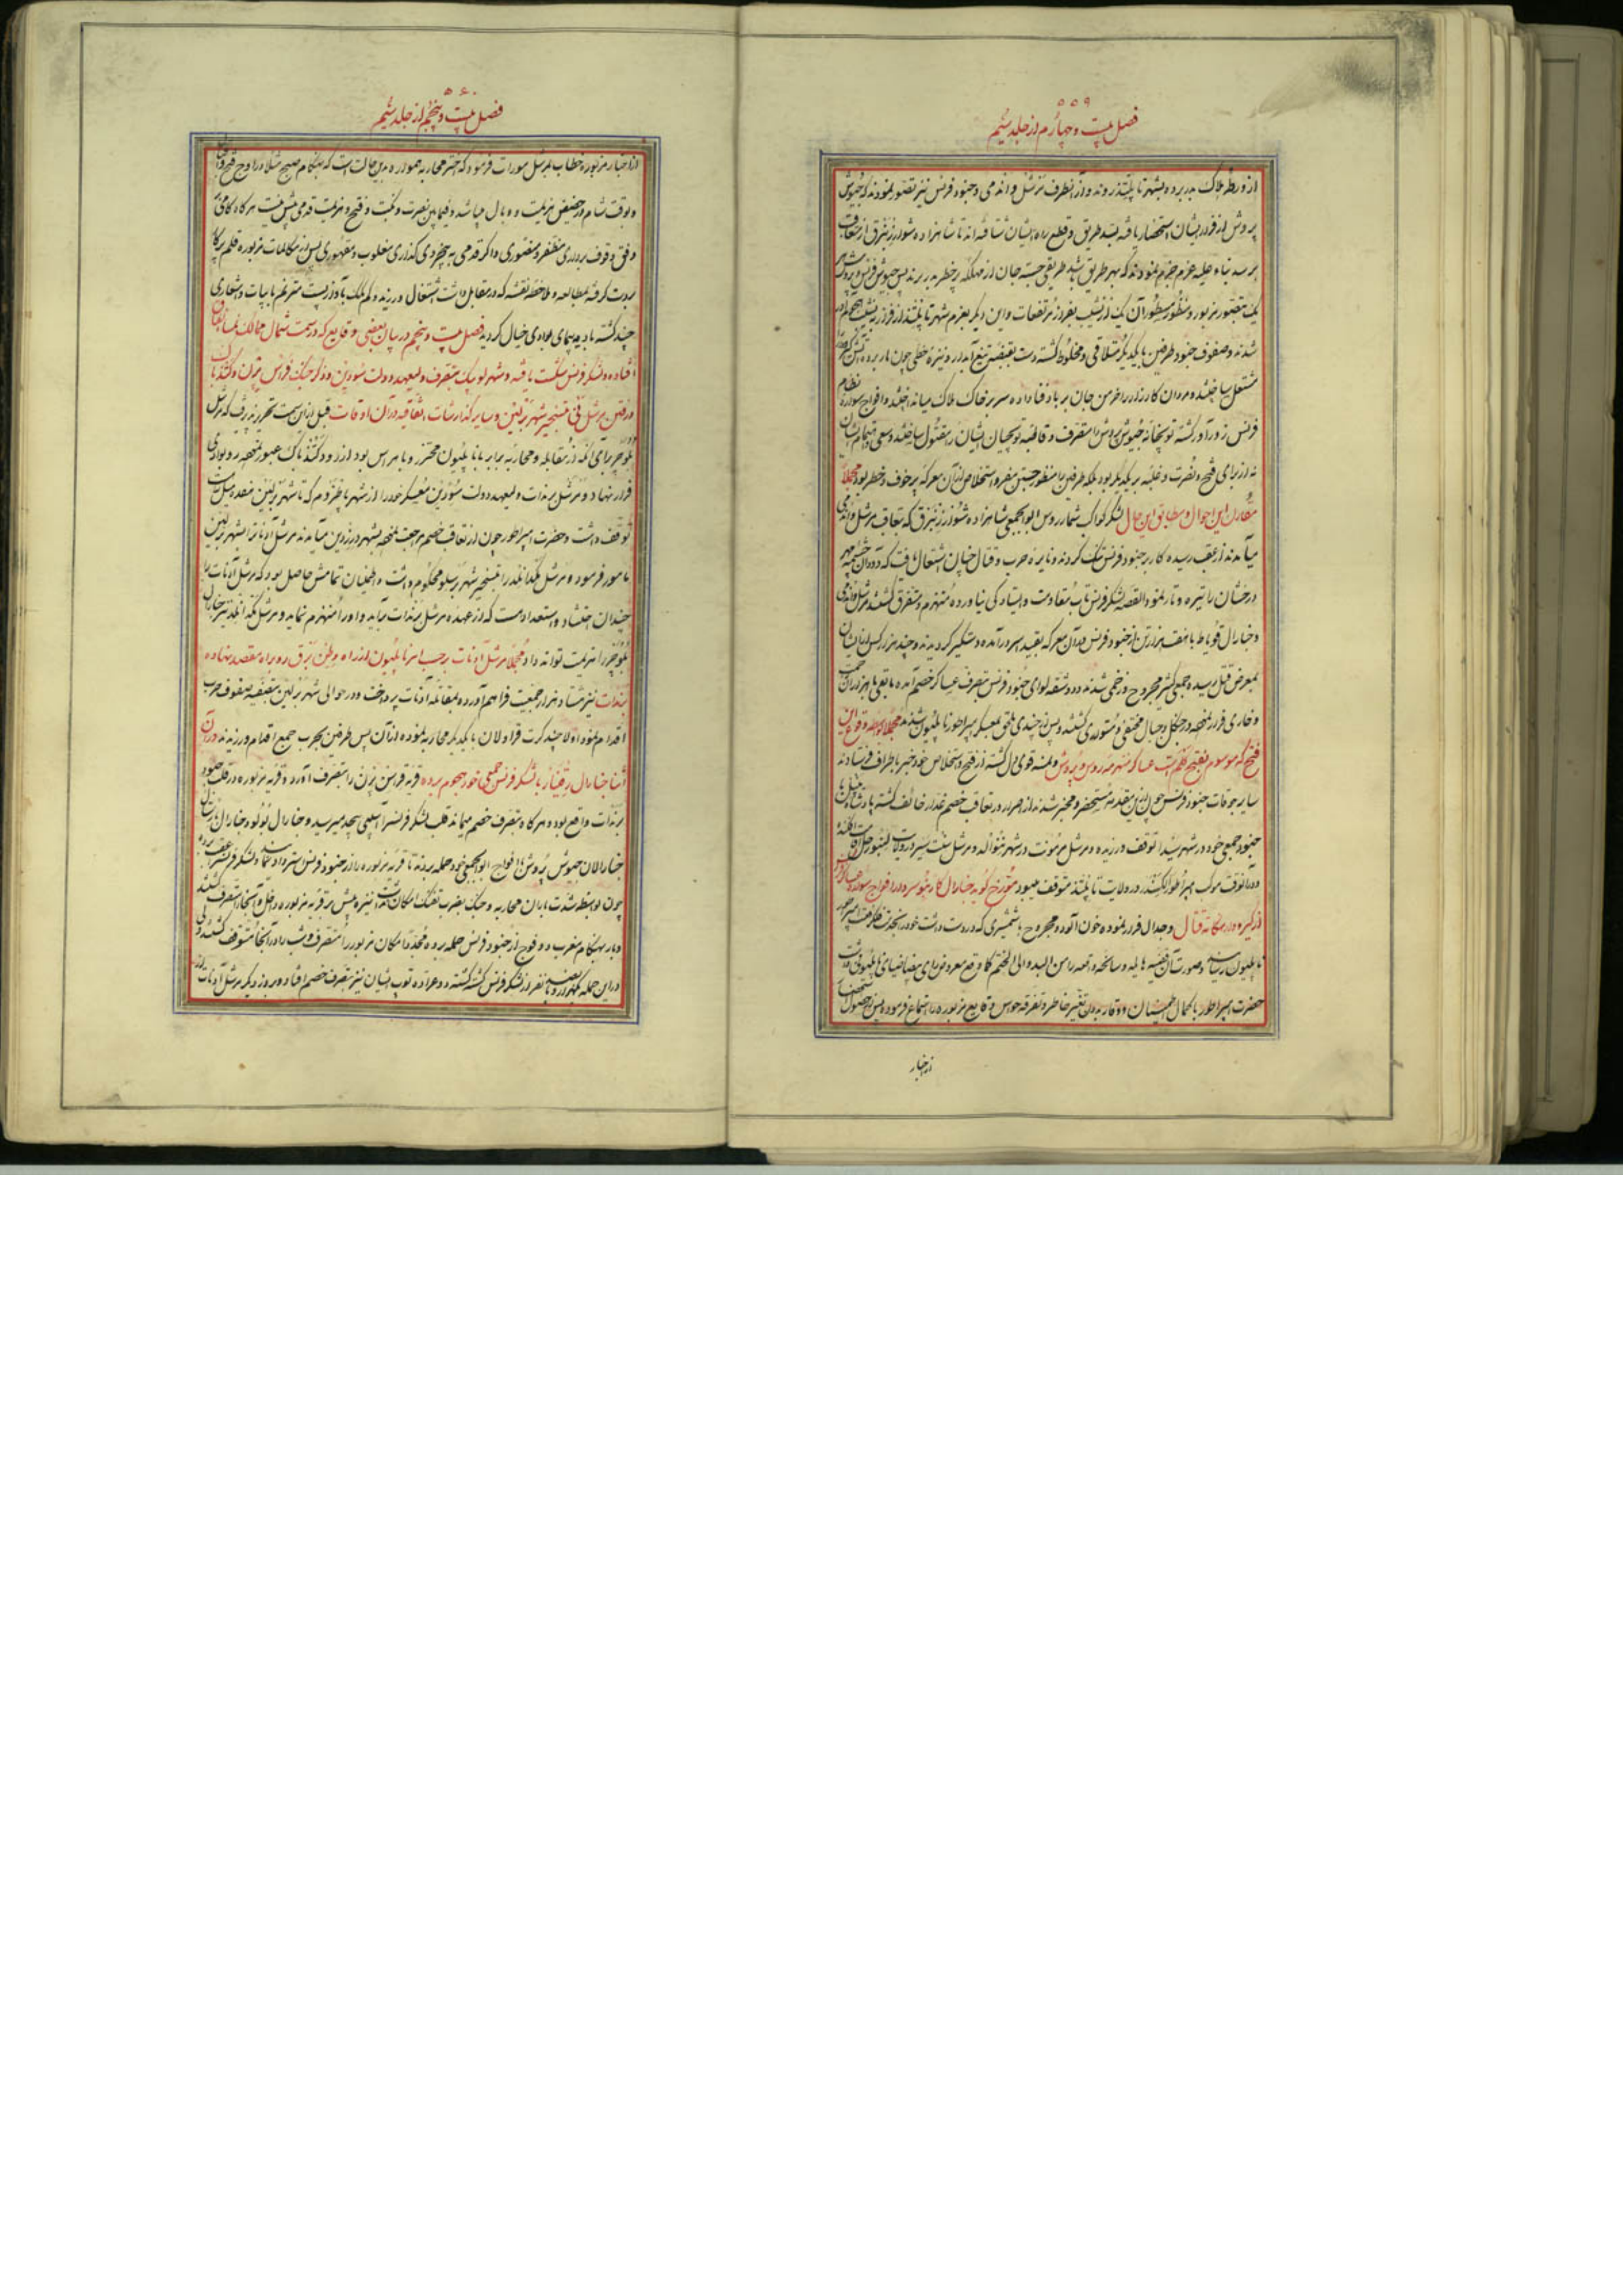 ۵۵۹
فصل بیست و چهارم از جلد سیم
از ورطه هلاک بدر برده بشهر تاپلیتز روند و از آنطرف مرشل واندمی و جنود فرنس نیز تصور نمودند که جیوش
پروش از فرار ایشان استحضار یافته سد طریق و قطع راه ایشان شتافته اند تا شاهزاده شوارزنبرق از تعاقب
برسد بناء علیه عزم جزم نمودند که بهر طریق باشد طریقی جسته جان از مهلکه پرخطر بدر برند پس جیوش فرنس و پروش
یک بتصور مزبور و منظور مسطور آن یک از نشیب بفراز مرتفعات و این دیگر بعزم شهر تاپلیتز از فراز به نشیب
شدند و صفوف جنود طرفین با یکدیگر متلاقی و مخلوط گشته دست بقبضه تیغ آبدار و نیزه خطی چون مار برده آتش
مشتعل ساختند و مردان کارزار را خرمن جان بر باد فنا داده سر بر خاک هلاک میانداختند و افواج سواره نظام
فرنس زور آور گشته توپخانه جیوش پروش را متصرف و قاطبه توپچیان ایشان را مقتول ساختند و سعی و اهتمام ایشان
نه از برای فتح و نصرت و غلبه بر یکدیگر بود بلکه طرفین را منظور جستن مفر و استخلاص از آن معرکه پر خوف و خطر بود مجملا
مقارن این احوال و مطابق این حال لشکر کواکب شمار روس ابوابجمعی شاهزاده شوارزنبرق که بتعاقب مرشل واندمی
میآمدند از عقب رسیده کار بر جنود فرنس تنگ کردند و نایره حرب و قتال چنان اشتعال یافت که دود آن چشمه مهر
درخشان را تیره و تار نمود القصه لشکر فرنس تاب مقاومت و ایستادگی نیاورده منهزم و متفرق گشتند مرشل واندمی
و جنارال قوباط با هفت هزار تن از جنود فرنس در آن معرکه بقید اسر در آمده دستگیر گردیدند و چند هزار کس از ایشان
بمعرض قتل رسیده جمعی کثیر مجروح و زخمی شدند و دو شقه لوای جنود فرنس بتصرف عساکر خصم آمده مابقی با هزاران
و خاری فرار نموده در جنگل و جبال مختفی و متواری گشتند و پس از چندی ملحق بمعسکر امپراطور ناپلیون شدند مجملا بواسطه وقوع این
فتح که موسوم بفتح کلم است عساکر نمسه و روس و پروش و نمسه قوی دل گشته از فتح و استخلاص خود خبر باطراف فرستادند
سایر جوقات جنود فرنس چون از این مقدمه مستحضر و مخبر شدند از اصرار در تعاقب خصم غدار خائف گشته
جنود جمعی خود در شهر توقف ورزیده و مرشل مرمونت در شهر و مرشل سنت سیر در ولایت
و در آنوقت موکب امپراطور الکسندر در ولایت تاپلیتز متوقف میبود مورخ گوید جنارال کاربنو سردار افواج سواره
از گیر و دار هنگامه قتال و جدال فرار نموده خون آلوده و مجروح با شمشیری که در دست داشت خود را بخدمت حضرت امپراطور
ناپلیون رسانیده صورت آن قضیه هایله و سانحه واقعه را من البدو الی الختم کما وقع معروض رای بیضا ضیای ناپلیون داشت
حضرت امپراطور با کمال اطمینان و وقار بدون تغییر خاطر و تفرقه حواس وقایع مزبوره را استماع فرموده پس از حصول
از اخبار
۵۶۰
فصل بیست و پنجم از جلد سیم
از اخبار مزبوره خطاب بمرشل مورات فرمود که اختر محاربه همواره بدین حالت است که هنگام صبح مثلا در اوج فتح
و بوقت شام در حضیض هزیمت و وبال میباشد و فیمابین نصرت و نکبت و فتح و هزیمت قدمی بیش نیست هر گاه گامی
وفق وقوف برداری مظفر و منصوری و اگر قدمی به بیخردی گذاری مغلوب و مقهوری پس از مکالمات مزبوره قلم پرگار
بدست گرفته بمطالعه و ملاحظه نقشه که در مقابل داشت اشتغال ورزیده کم کم بآواز پست مترنم بابیات و اشعاری
چند گشته بادیه پیمای بوادی خیال گردید فصل بیست و پنجم در بیان بعضی وقایع که در سمت شمال ممالک نمسا اتفاق
افتاده و لشکر فرنس شکست یافته و شهر لوبیک متصرف ولیعهد دولت سودین و ذکر جنگ قراس برن و
و رفتن مرشل نی بتسخیر شهر برلین و سایر گذارشات اتفاقیه در آن اوقات قبل از این سمت تحریر پذیرفت که مرشل
بلوچر برای آنکه از مقابله و محاربه برابر با ناپلیون محترز و با هراس بود از رود کتذباک عبور نموده رو بوادی
فرار نهاد و مرشل برنادت ولیعهد دولت سودین معسکر خود را از شهر تا
توقف داشت و حضرت امپراطور چون از تعاقب خصم مراجعت نموده بشهر درزدین میآمدند مرشل اودینات را بشهر برلین
مامور فرمود و مرشل مکدانلد را بتسخیر شهر برسلو محکوم داشت و اطمینان تمامش حاصل بود که مرشل اودینات را
چندان احتشاد و استعداد هست که از عهده مرشل برنادت برآید و او را منهزم نماید و مرشل مکدانلد نیز جنارال
بلوچر را هزیمت تواند داد مجملا مرشل اودینات برحسب امر ناپلیون از راه وطن برق رو براه مقصد نهاده
برنادت نیز هشتاد هزار جمعیت فراهم آورده بمقاتله اودینات پرداخت و در حوالی شهر برلین بتصفیه صفوف حرب
اقدام نمود اولا چند کرت قراولان با یکدیگر محاربه نموده از آن پس طرفین بحرب جمیع اقدام ورزیدند در آن
اثنا جنارال رقنیار با لشکر فرنس جمعی خود هجوم برده قریه قراس برن را بتصرف آورد و قریه مزبوره در قلب جنود
برنادت واقع بود و هر گاه بتصرف خصم میماند قلب لشکر فرنس را آسیبی بیحد میرسید و جنارال بولو و جنارال
جنارالان جیوش پروش با افواج ابوابجمعی خود حمله بردند تا قریه مزبوره را از جنود فرنس استرداد نمایند و لشکر فرنس را عقب
چون بواسطه شدت باران محاربه و جنگ بضرب تفنگ امکان نداشت با نیزه پیش بر قریه مزبوره داخل و آنجا را متصرف گشتند
و باز بهنگام مغرب دو فوج از جنود فرنس حمله برده مجددا مکان مزبور را متصرف و شب را در آنجا متوقف گشتند
در این حمله یکهزار و پانصد نفر از لشکر فرنس کشته گشته و عراده توپ ایشان نیز بتصرف خصم افتاد و روز دیگر مرشل اودینات